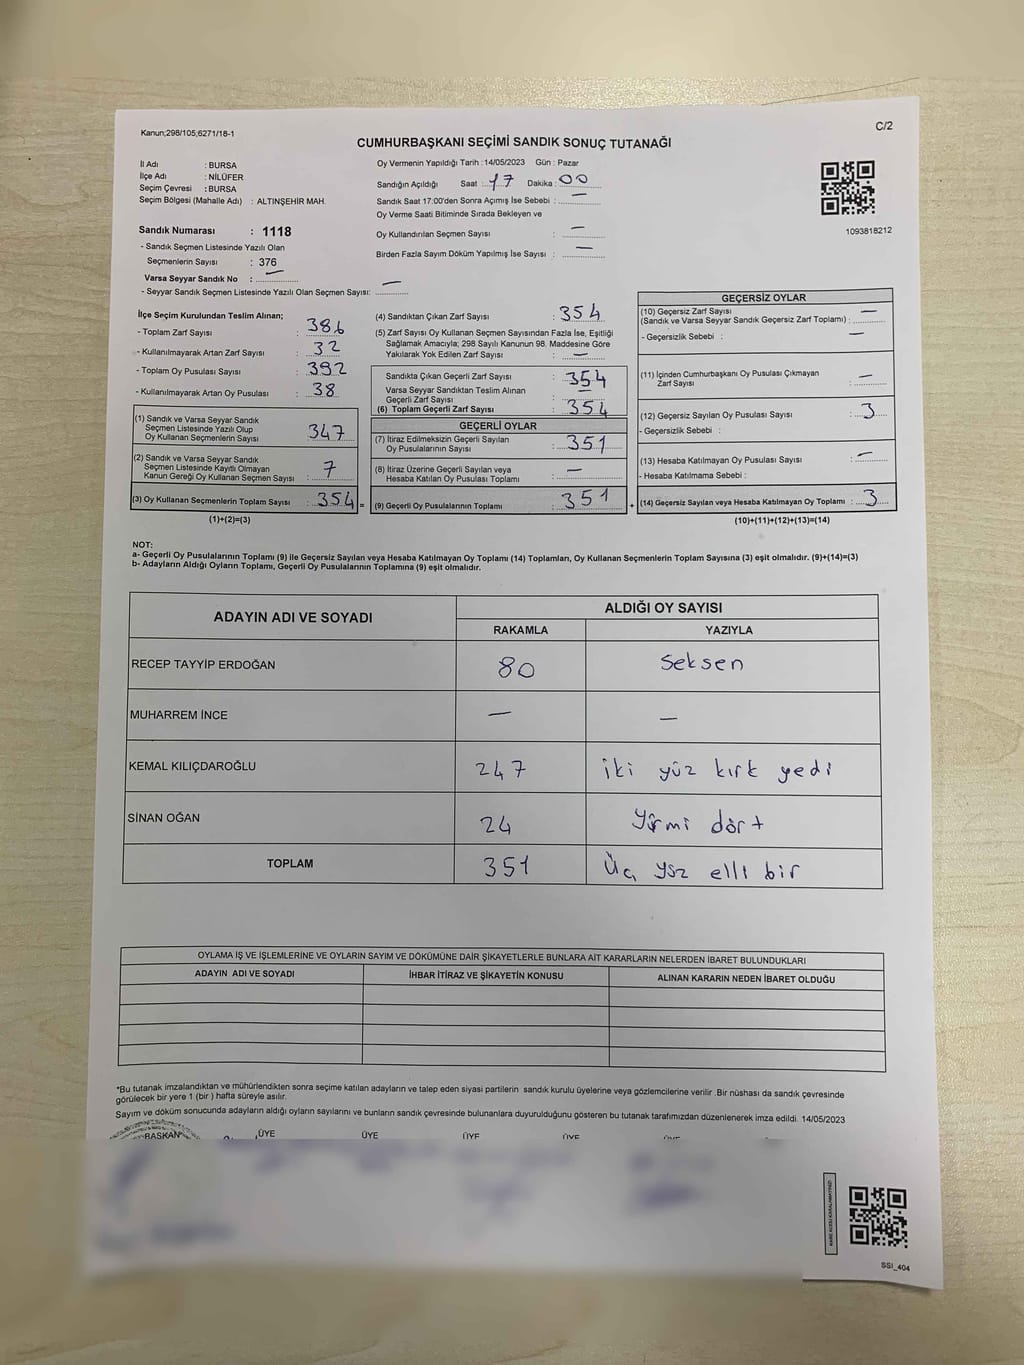 Kanun;298/105;6271/18-1
C/2
CUMHURBAŞKANI SEÇİMİ SANDIK SONUÇ TUTANAĞI
İl Adı : BURSA
İlçe Adı : NİLÜFER
Seçim Çevresi : BURSA
Seçim Bölgesi (Mahalle Adı) : ALTINŞEHİR MAH.
Oy Vermenin Yapıldığı Tarih :14/05/2023 Gün : Pazar
Sandığın Açıldığı Saat : 17 Dakika : 00
Sandık Saat 17:00'den Sonra Açımış İse Sebebi : —
Oy Verme Saati Bitiminde Sırada Bekleyen ve
Oy Kullandırılan Seçmen Sayısı : —
Birden Fazla Sayım Döküm Yapılmış İse Sayısı : —
1093818212
Sandık Numarası : 1118
- Sandık Seçmen Listesinde Yazılı Olan
Seçmenlerin Sayısı : 376
Varsa Seyyar Sandık No : —
- Seyyar Sandık Seçmen Listesinde Yazılı Olan Seçmen Sayısı: —
İlçe Seçim Kurulundan Teslim Alınan;
- Toplam Zarf Sayısı : 386
- Kullanılmayarak Artan Zarf Sayısı : 32
- Toplam Oy Pusulası Sayısı : 392
- Kullanılmayarak Artan Oy Pusulası : 38
(1) Sandık ve Varsa Seyyar Sandık
Seçmen Listesinde Yazılı Olup
Oy Kullanan Seçmenlerin Sayısı : 347
(2) Sandık ve Varsa Seyyar Sandık
Seçmen Listesinde Kayıtlı Olmayan
Kanun Gereği Oy Kullanan Seçmen Sayısı : 7
(3) Oy Kullanan Seçmenlerin Toplam Sayısı : 354 =
(1)+(2)=(3)
(4) Sandıktan Çıkan Zarf Sayısı : 354
(5) Zarf Sayısı Oy Kullanan Seçmen Sayısından Fazla İse, Eşitliği
Sağlamak Amacıyla; 298 Sayılı Kanunun 98. Maddesine Göre
Yakılarak Yok Edilen Zarf Sayısı : —
Sandıkta Çıkan Geçerli Zarf Sayısı : 354
Varsa Seyyar Sandıktan Teslim Alınan
Geçerli Zarf Sayısı : —
(6) Toplam Geçerli Zarf Sayısı : 354
GEÇERLİ OYLAR
(7) İtiraz Edilmeksizin Geçerli Sayılan
Oy Pusulalarının Sayısı : 351
(8) İtiraz Üzerine Geçerli Sayılan veya
Hesaba Katılan Oy Pusulası Toplamı : —
(9) Geçerli Oy Pusulalarının Toplamı : 351 +
GEÇERSİZ OYLAR
(10) Geçersiz Zarf Sayısı
(Sandık ve Varsa Seyyar Sandık Geçersiz Zarf Toplamı) : —
- Geçersizlik Sebebi : —
(11) İçinden Cumhurbaşkanı Oy Pusulası Çıkmayan
Zarf Sayısı : —
(12) Geçersiz Sayılan Oy Pusulası Sayısı : 3
- Geçersizlik Sebebi :
(13) Hesaba Katılmayan Oy Pusulası Sayısı : —
- Hesaba Katılmama Sebebi :
(14) Geçersiz Sayılan veya Hesaba Katılmayan Oy Toplamı : 3
(10)+(11)+(12)+(13)=(14)
NOT:
a- Geçerli Oy Pusulalarının Toplamı (9) ile Geçersiz Sayılan veya Hesaba Katılmayan Oy Toplamı (14) Toplamları, Oy Kullanan Seçmenlerin Toplam Sayısına (3) eşit olmalıdır. (9)+(14)=(3)
b- Adayların Aldığı Oyların Toplamı, Geçerli Oy Pusulalarının Toplamına (9) eşit olmalıdır.
ADAYIN ADI VE SOYADI ALDIĞI OY SAYISI
RAKAMLA YAZIYLA
RECEP TAYYİP ERDOĞAN 80 Seksen
MUHARREM İNCE — —
KEMAL KILIÇDAROĞLU 247 iki yüz kırk yedi
SİNAN OĞAN 24 Yirmi dört
TOPLAM 351 Üç yüz elli bir
OYLAMA İŞ VE İŞLEMLERİNE VE OYLARIN SAYIM VE DÖKÜMÜNE DAİR ŞİKAYETLERLE BUNLARA AİT KARARLARIN NELERDEN İBARET BULUNDUKLARI
ADAYIN ADI VE SOYADI İHBAR İTİRAZ VE ŞİKAYETİN KONUSU ALINAN KARARIN NEDEN İBARET OLDUĞU
*Bu tutanak imzalandıktan ve mühürlendikten sonra seçime katılan adayların ve talep eden siyasi partilerin sandık kurulu üyelerine veya gözlemcilerine verilir .Bir nüshası da sandık çevresinde
görülecek bir yere 1 (bir ) hafta süreyle asılır.
Sayım ve döküm sonucunda adayların aldığı oyların sayılarını ve bunların sandık çevresinde bulunanlara duyurulduğunu gösteren bu tutanak tarafımızdan düzenlenerek imza edildi. 14/05/2023
BAŞKAN ÜYE ÜYE ÜYE ÜYE ÜYE
SSI_404